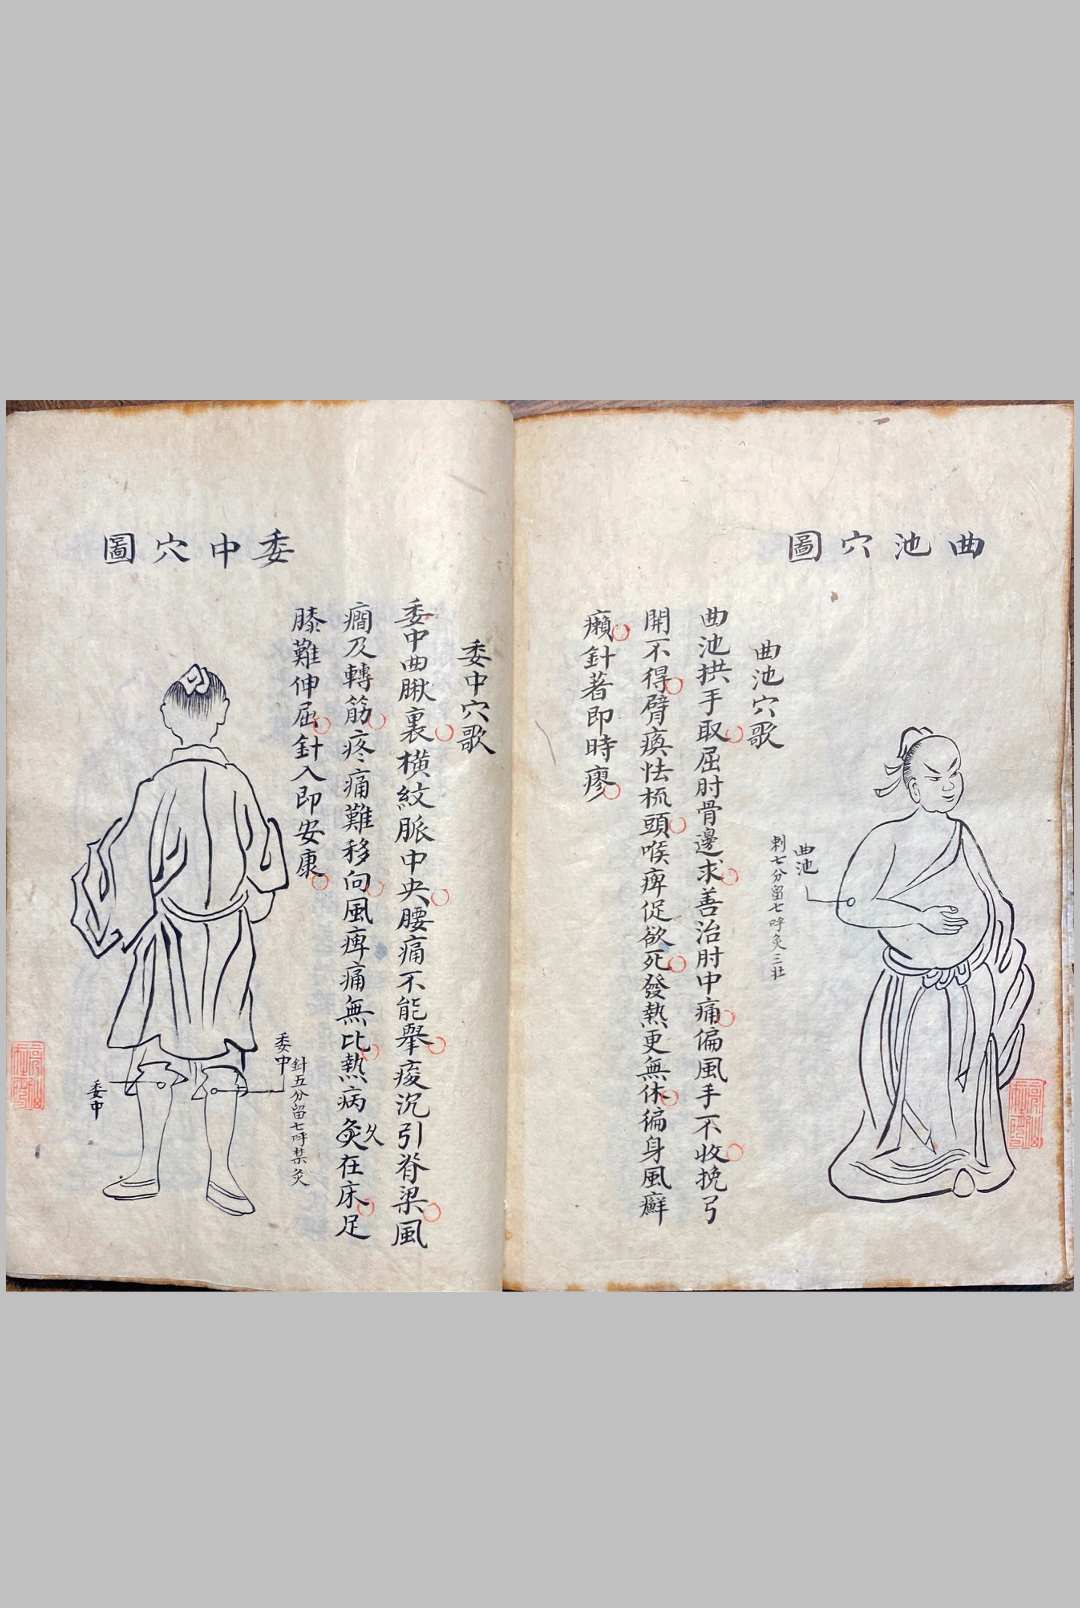 曲池穴圖
曲池
刺七分留七呼灸三壯
曲池穴歌
曲池拱手取屈肘骨邊求善治肘中痛偏風手不收挽弓
開不得臂瘓怯梳頭喉痺促欲死發熱更無休徧身風癬
癩針著即時瘳
委中穴圖
委中穴歌
委中曲䐐裏橫紋脈中央腰痛不能舉痠沉引脊梁風
癇及轉筋疼痛難移向風痺痛無比熱病灸久在床足
膝難伸屈針入即安康
委中
針五分留七呼禁灸
委中